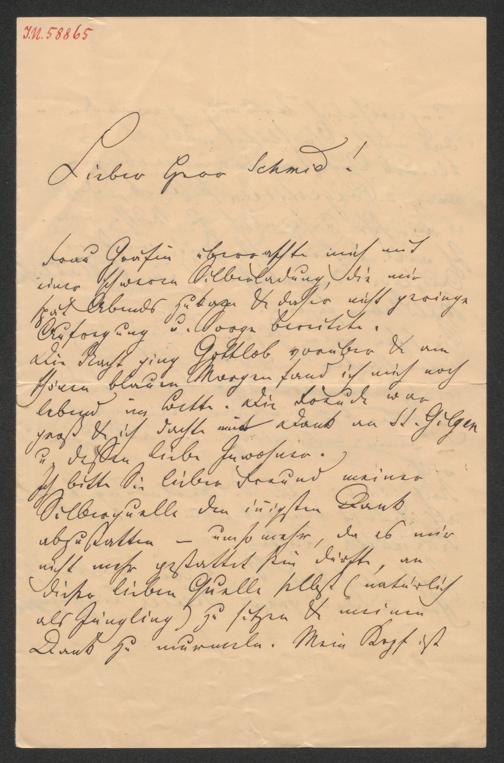 I.N. 58865
Lieber Herr Schmid!
Frau Gräfin überraschte mich mit
einer schweren Silberladung, die mir
spät Abends zukam & daher nicht geringe
Aufregung u. Sorge bereitete.
Die Nacht ging Gottlob vorüber & am
schönen blauen Morgen fand ich mich noch
lebend im Bette. Die Freude war
groß & ich dachte mit Dank an St. Gilgen
u. dessen liebe Inwohner.
Ich bitte Sie lieber Freund meiner
Silberquelle den innigsten Dank
abzustatten – umso mehr, da es mir
nicht mehr gestattet sein dürfte, an
dieser lieben Quelle selbst (natürlich
als Jüngling) zu sitzen & meinen
Dank zu murmeln. Mein Kopf ist